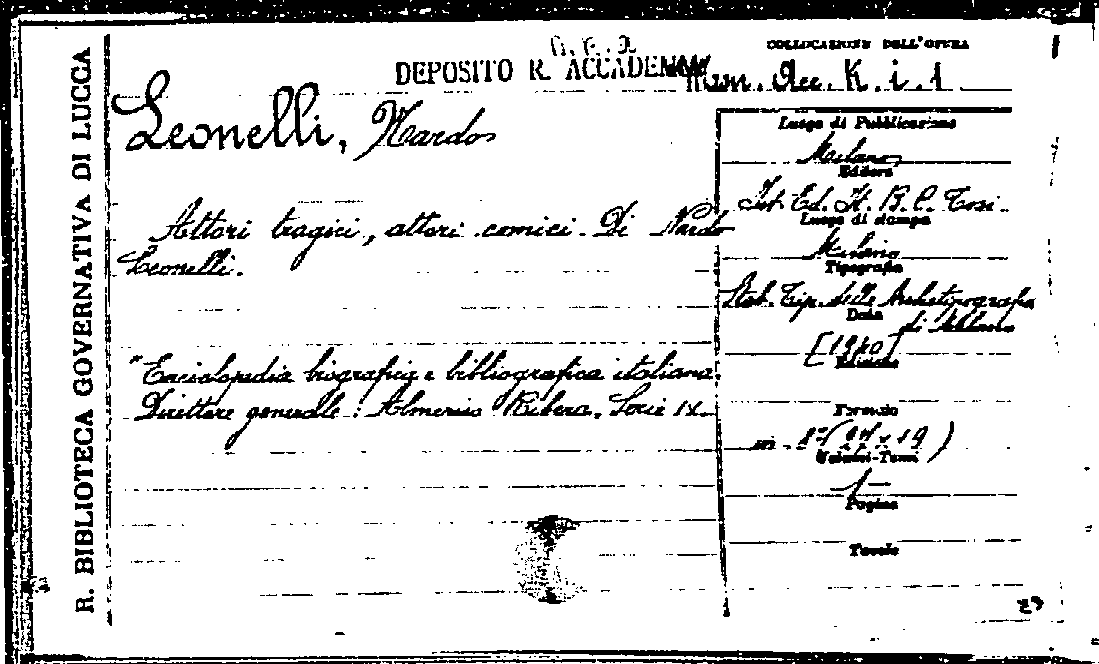 R. BIBLIOTECA GOVERNATIVA DI LUCCA
DEPOSITO R. ACCADEMIA
COLLOCAZIONE DELL'OPERA
Mam. Acc. K. i. 1
Leonelli, Nardo
Attori tragici, attori comici. Di Nardo
Leonelli.
"Enciclopedia biografica e bibliografica italiana.
Direttore generale: Almerico Ribera. Serie IX.
Luogo di Pubblicazione
Milano
Editore
Ist. Ed. It. B. C. Tosi.
Luogo di stampa
Milano
Tipografia
Stab. Tip. delle Archetipografia
di Milano
Data
[1940]
Edizione
Formato
in - 8° (24 x 19)
Volumi-Tomi
Pagine
Tavole